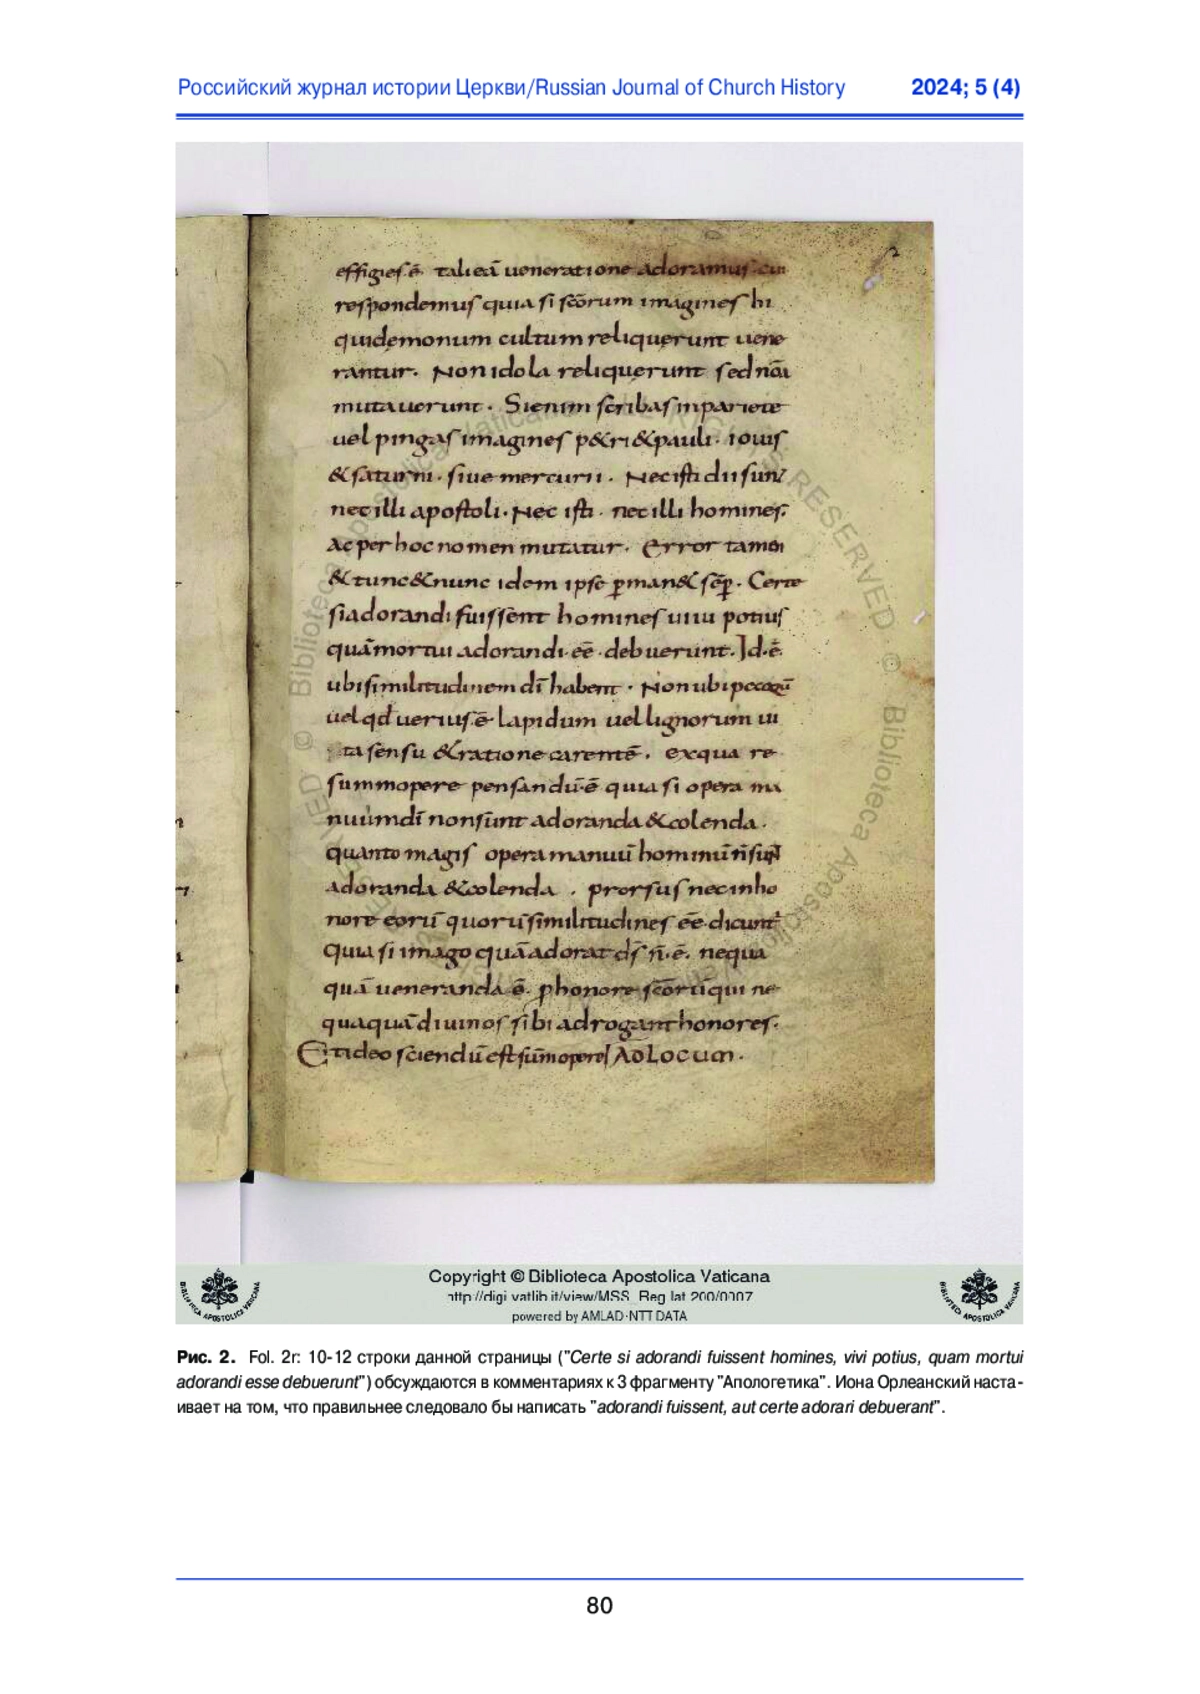 Российский журнал истории Церкви/Russian Journal of Church History 2024; 5 (4)
effigies ē talieā ueneratione adoramus cui
respondemus quia si scōrum imagines hi
qui demonum cultum reliquerunt uene
rantur. Non idola reliquerunt sed nōā
mutauerunt. Si enim scribas in pariete
uel pingas imagines p&ri & pauli. iouis
& saturni. siue mercurii. Nec isti dii sunt
nec illi apostoli. Nec isti. nec illi homines.
Ac per hoc nomen mutatur. Error tamen
& tunc & nunc idem ipse p̄man& sēp. Certe
si adorandi fuissent homines uiui potius
quā mortui adorandi eē debuerunt. Id.ē.
ubi similitudinem dī habent. Non ubi pecorū
uel qd uerius ē lapidum uel lignorum ui
ta sensu & ratione carentē. ex qua re
summopere pensandū ē quia si opera ma
nuum dī non sunt adoranda & colenda.
quanto magis opera manuū hominū n̄ sunt
adoranda & colenda. prorsus nec in ho
nore eorū quorū similitudines eē dicunt
quia si imago quā adorat ds̄ n̄.ē. nequa
quā ueneranda ē. p honore scōrū qui ne
quaquā diuinos sibi adrogant honores.
Et ideo sciendū est sūmopere AD LOCUM.
© Biblioteca Apostolica Vaticana
RESERVED © Biblioteca Apostolica
Copyright © Biblioteca Apostolica Vaticana
http://digi.vatlib.it/view/MSS_Reg.lat.200/0007
powered by AMLAD-NTT DATA
BIBLIOTECA APOSTOLICA VATICANA
BIBLIOTECA APOSTOLICA VATICANA
Рис. 2. Fol. 2r: 10-12 строки данной страницы ("Certe si adorandi fuissent homines, vivi potius, quam mortui
adorandi esse debuerunt") обсуждаются в комментариях к 3 фрагменту "Апологетика". Иона Орлеанский наста-
ивает на том, что правильнее следовало бы написать "adorandi fuissent, aut certe adorari debuerant".
80